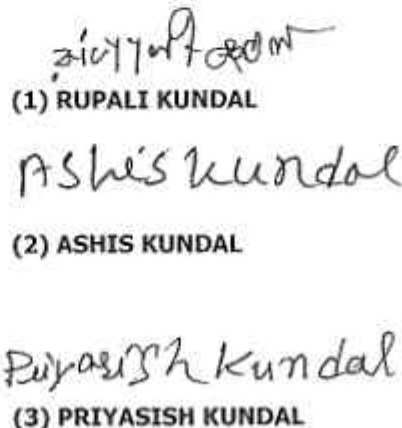 (1) RUPALI KUNDAL
Ashis Kundal
(2) ASHIS KUNDAL
Priyasish Kundal
(3) PRIYASISH KUNDAL